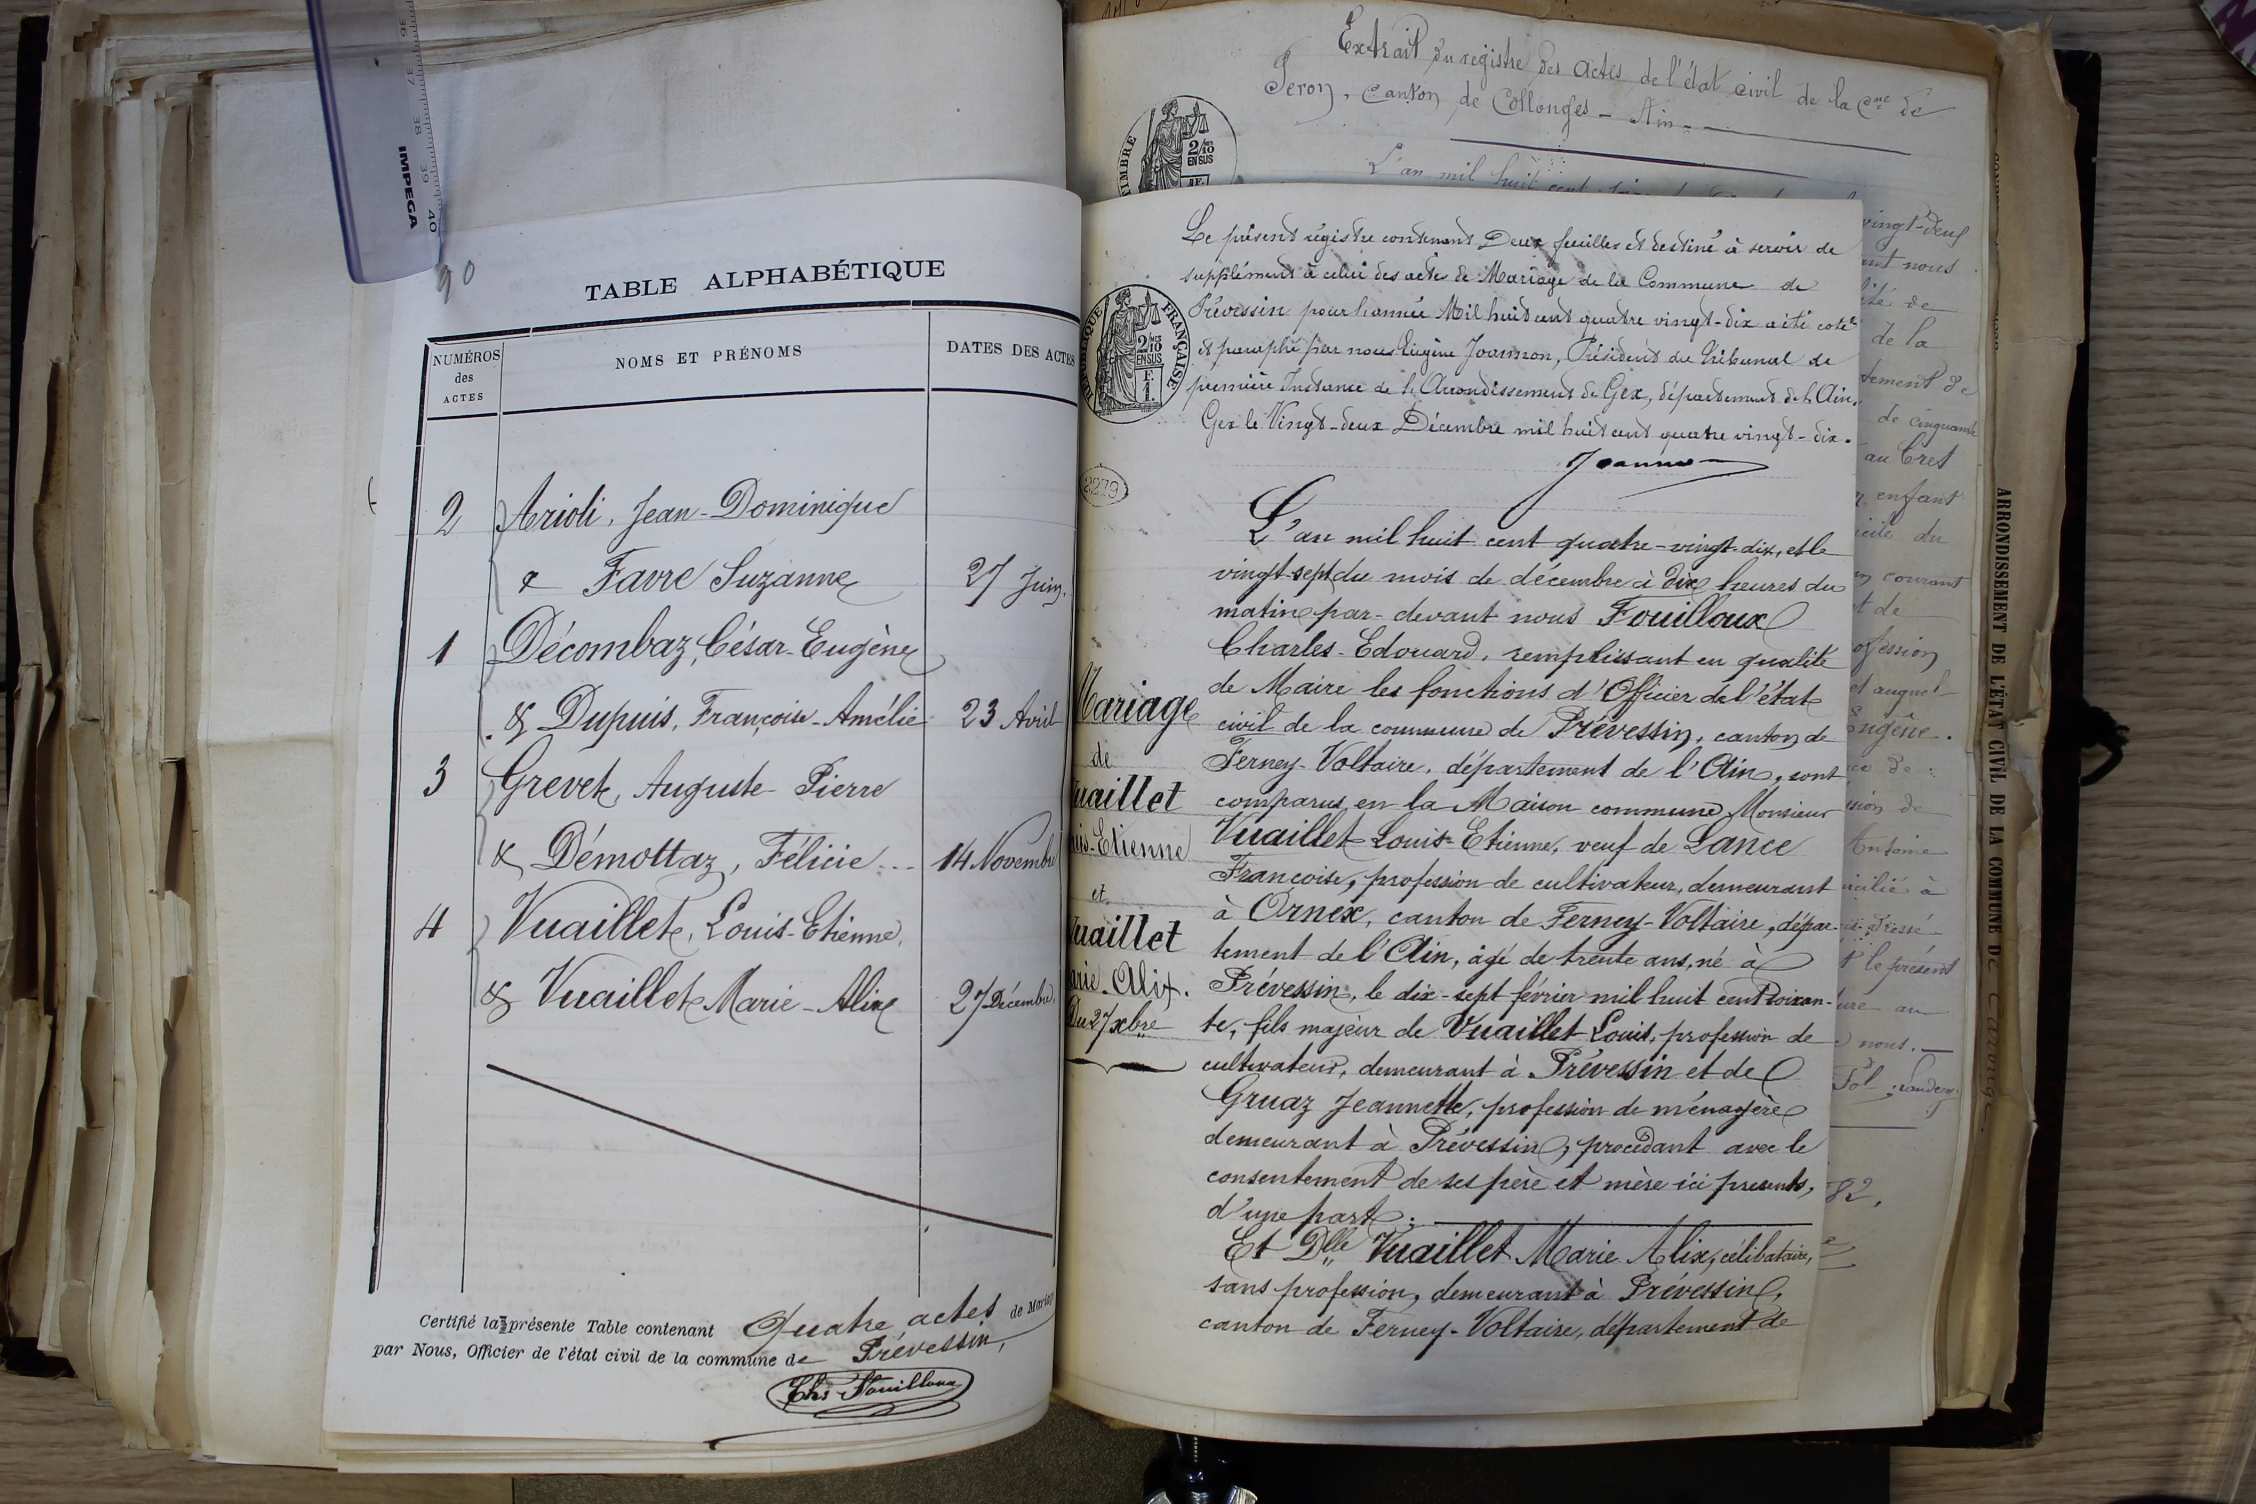 36 37 38 39 40
IMPEGA
90
TABLE ALPHABÉTIQUE
NUMÉROS
des
ACTES
NOMS ET PRÉNOMS
DATES DES ACTES
2 Arioli, Jean-Dominique
& Favre Suzanne 27 Juin.
1 Décombaz, César-Eugène
& Dupuis, Françoise-Amélie 23 Avril
3 Grevet, Auguste Pierre
& Démottaz, Félicie 14 Novembre
4 Vuaillet, Louis-Etienne,
& Vuaillet Marie-Alix 27 Décembre.
Certifié la présente Table contenant Quatre actes de Mariage
par Nous, Officier de l'état civil de la commune de Prévessin,
Chs Fouilloux
Extrait du registre des actes de l'état civil de la cne de
Peron, canton de Collonges - Ain -
L'an mil huit cent
TIMBRE
2/10
EN SUS
Le présent régistre contenant Deux feuilles et destiné à servir de
supplément à celui des actes de Mariage de la Commune de
Prévessin pour l'année Mil huit cent quatre vingt-dix a été coté
et paraphé par nous Eugène Joannon, Président du Tribunal de
première Instance de l'Arrondissement de Gex, département de l'Ain.
Gex le Vingt-deux Décembre mil huit cent quatre vingt-dix.
Joannon
RÉPUBLIQUE FRANÇAISE
2/10
EN SUS
F.
1.
2279
L'an mil huit cent quatre-vingt-dix, et le
vingt-sept du mois de décembre à dix heures du
matin par-devant nous Fouilloux
Charles-Edouard, remplissant en qualité
de Maire les fonctions d'Officier de l'état
civil de la commune de Prévessin, canton de
Ferney-Voltaire, département de l'Ain, sont
comparus en la Maison commune Monsieur
Vuaillet Louis-Etienne, veuf de Lance
Françoise, profession de cultivateur, demeurant
à Ornex, canton de Ferney-Voltaire, dépar-
tement de l'Ain, âgé de trente ans, né à
Prévessin, le dix-sept février mil huit cent soixan-
te, fils majeur de Vuaillet Louis, profession de
cultivateur, demeurant à Prévessin et de
Gruaz Jeannette, profession de ménagère
demeurant à Prévessin, procédant avec le
consentement de ses père et mère ici présents,
d'une part.
Et Dlle Vuaillet Marie Alix, célibataire,
sans profession, demeurant à Prévessin,
canton de Ferney-Voltaire, département de
Mariage
de
Vuaillet
Louis-Etienne
et
Vuaillet
Marie-Alix.
Du 27 xbre
vingt-deux
nous
de
de la
de
de cinquante
au Cret
enfant
du
courant
de
profession
et auquel
Eugène.
de
de
Antoine
à
le présent
au
nous.
82.
ARRONDISSEMENT DE L'ÉTAT CIVIL DE LA COMMUNE DE